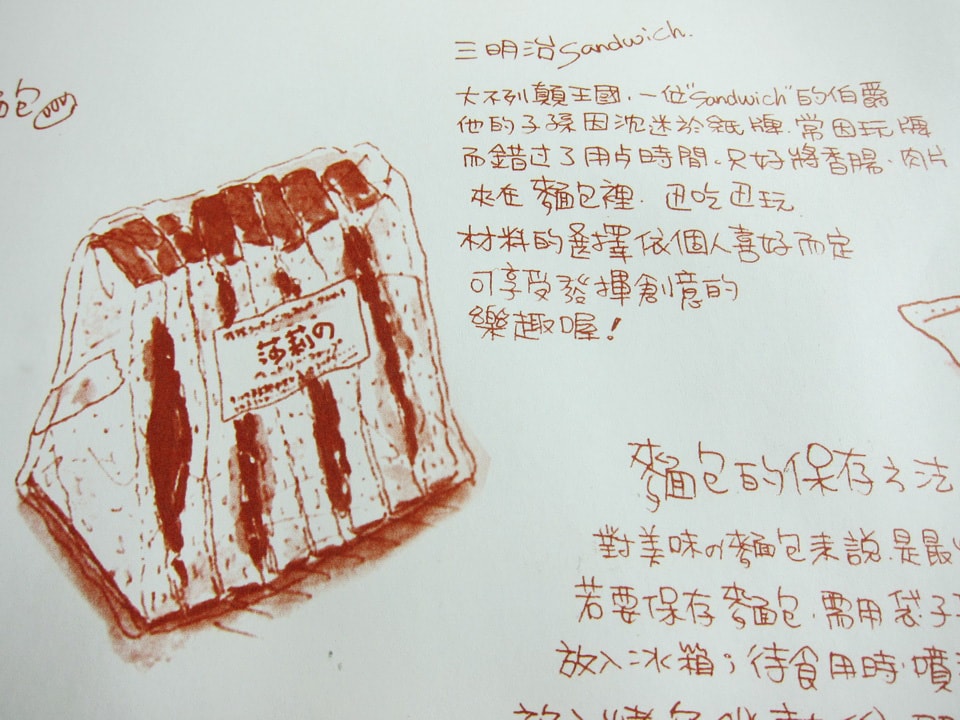 包
三明治 Sandwich.
大不列顛王國.一位"Sandwich"的伯爵
他的子孫因沈迷於紙牌.常因玩牌
而錯过了用点時間.只好將香腸.肉片
夾在麵包裡.丑吃丑玩
材料的選擇依個人喜好而定
可享受發揮創意的
樂趣喔!
莎莉の
麵包的保存之法
對美味の麵包来說.是最
若要保存麵包.需用袋子
放入冰箱;待食用時.噴
放入烤